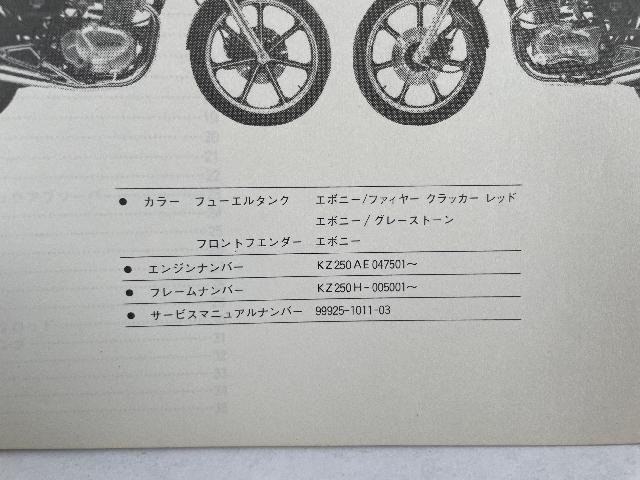 ● カラー フューエルタンク エボニー/ファィヤー クラッカー レッド
エボニー/グレーストーン
フロントフェンダー エボニー
● エンジンナンバー KZ250AE047501～
● フレームナンバー KZ250H-005001～
● サービスマニュアルナンバー 99925-1011-03